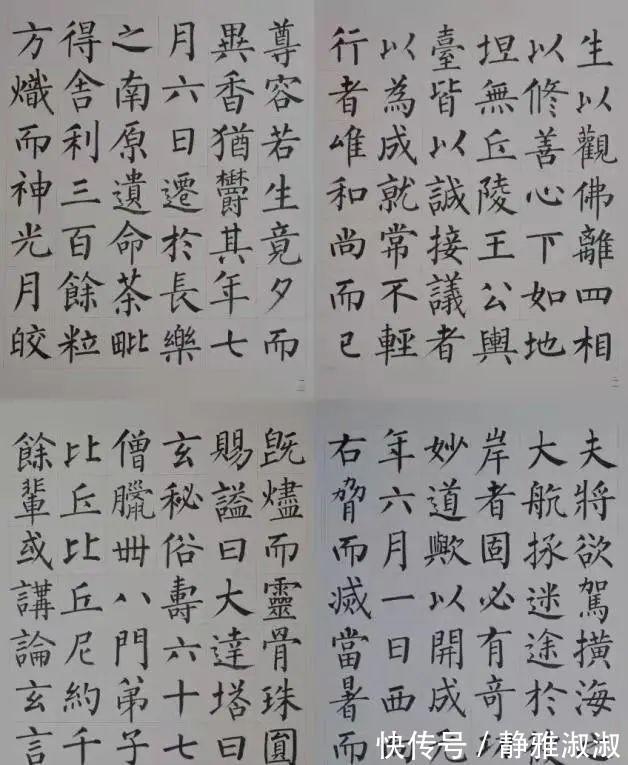 生以觀佛離四相
以修善心下如地
坦無丘陵王公輿
臺皆以誠接議者
以為成就常不輕
行者唯和尚而已
二
尊容若生竟夕而
異香猶欝其年七
月六日遷於長樂
之南原遺命茶毗
得舍利三百餘粒
方熾而神光月皎
二
夫將欲駕橫海
大航拯迷途於
岸者固必有奇
妙道歟以開成
年六月一日西
右脅而滅當暑而
既燼而靈骨珠圓
賜謚曰大達塔曰
玄秘俗壽六十七
僧臘卌八門弟子
比丘比丘尼約千
餘輩或講論玄言
快传号/静雅淑淑